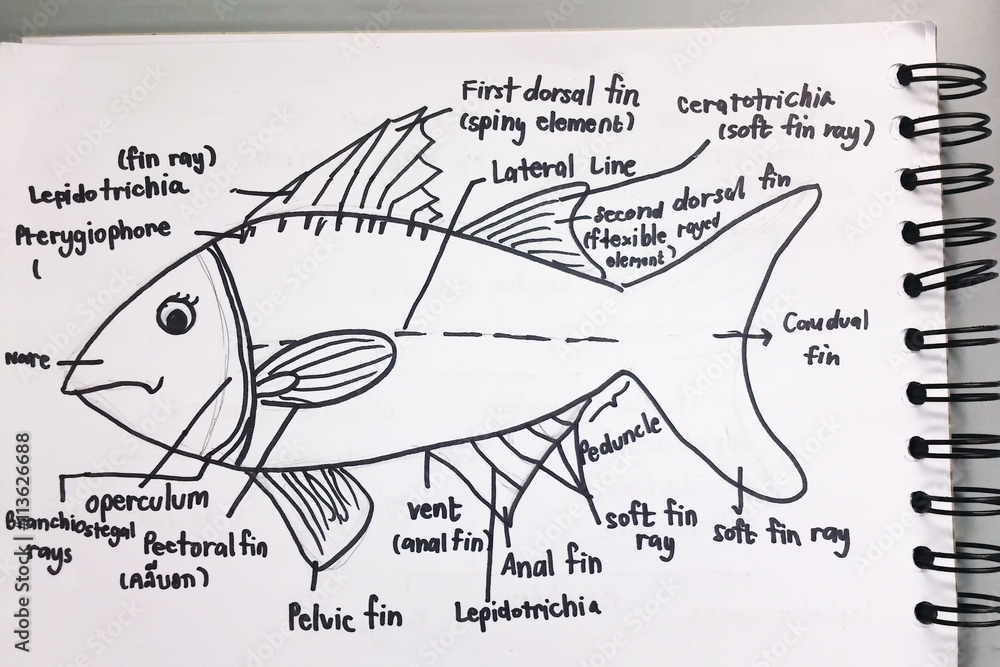 First dorsal fin
(spiny element)
Ceratotrichia
(soft fin ray)
(fin ray)
Lepidotrichia
Lateral Line
Second dorsal fin
(flexible rayed
element)
Pterygiophone
(
Caudual
fin
Nare
Peduncle
Branchiostegal
rays
operculum
Pectoral fin
(ครีบอก)
vent
(anal fin)
soft fin
ray
soft fin ray
Anal fin
Pelvic fin
Lepidotrichia
Adobe Stock | #113626688